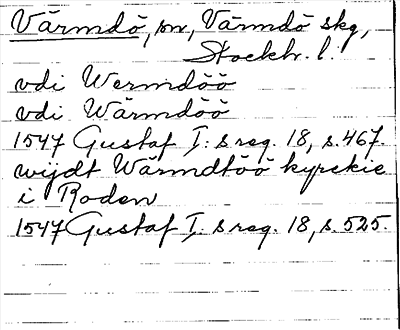 Värmdö, sn, Värmdö skg,
Stockh. l.
vdi Wermdöö
vdi Wärmdöö
1547 Gustaf I:s reg. 18, s. 467.
wijdt Wärmdtöö kyrckie
i Roden
1547 Gustaf I:s reg. 18, s. 525.